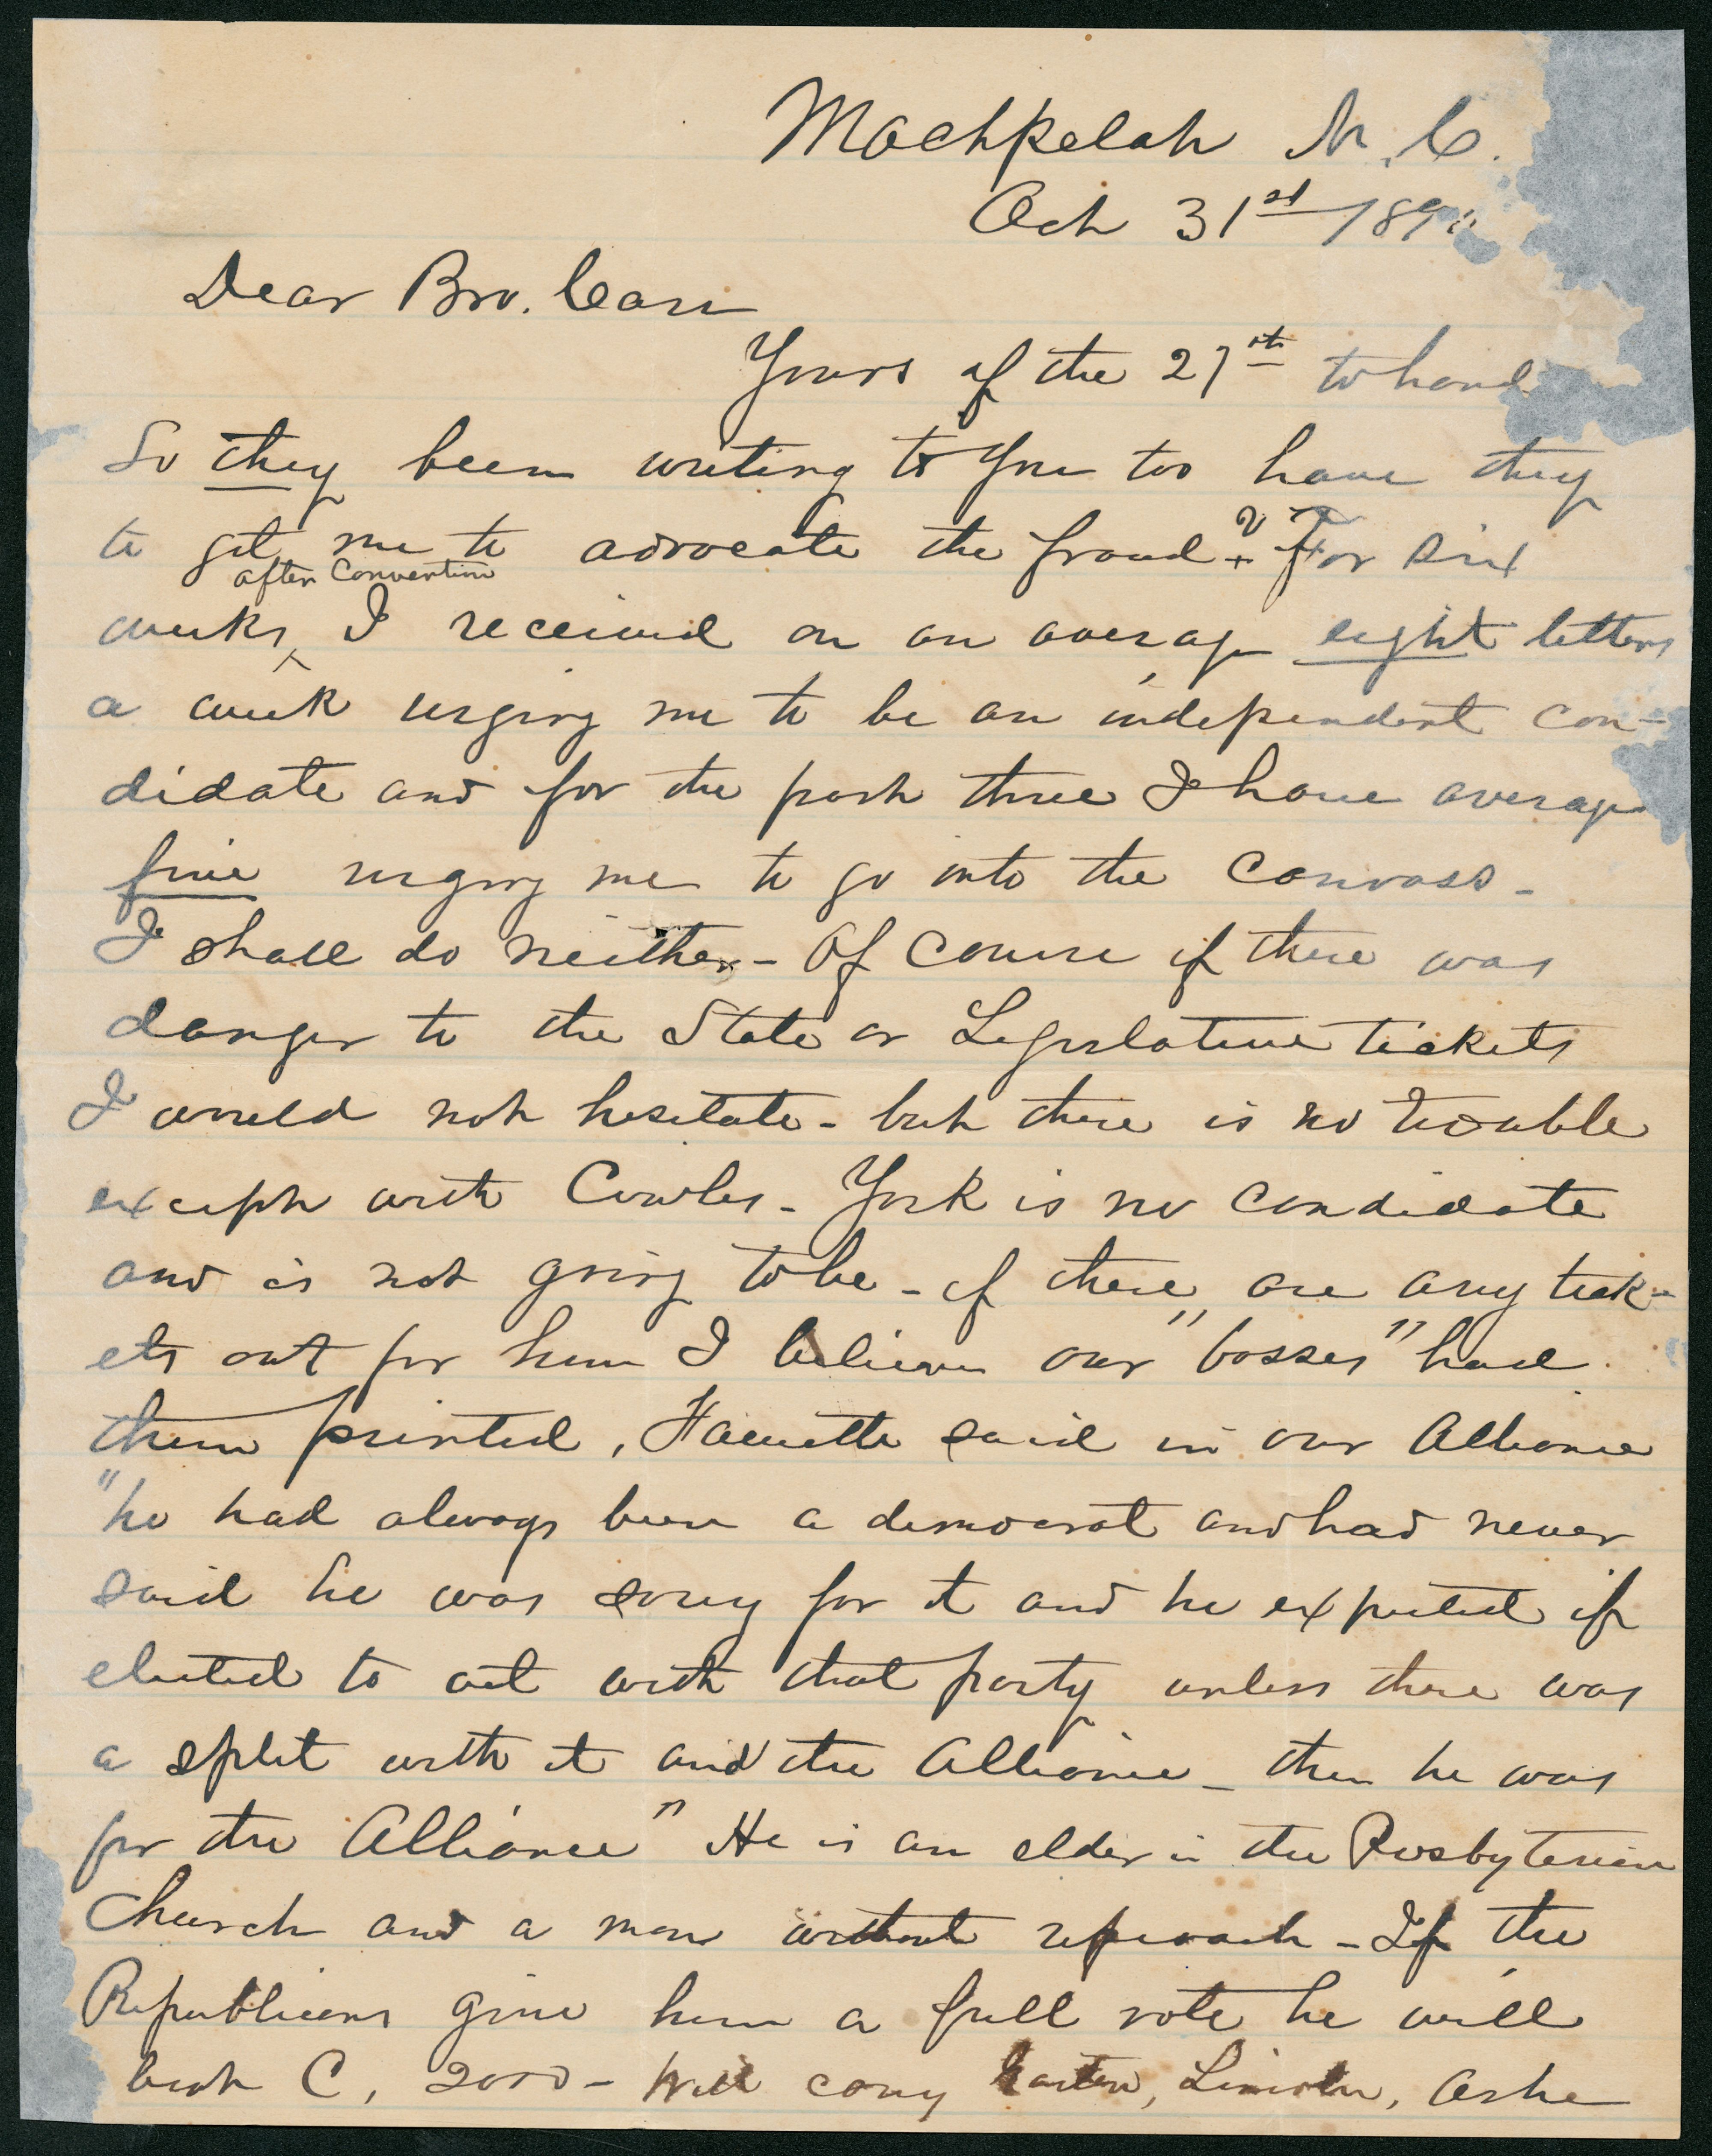 Machpelah N.C.
Oct 31st 189
Dear Bro. Carr
Yours of the 27th to hand
So they been writing to you too have they
to get me to advocate the fraud? For six
after Convention
weeks, I received on an average eight letters
a week urging me to be an independent can-
didate and for the past three I have average
five urging me to go into the Canvass -
I shall do neither - Of course if there was
danger to the State or Legislative tickets
I would not hesitate - but there is no trouble
except with Cowles - York is no candidate
and is not going to be - if there are any tick-
ets out for him I believe our "bosses" had
them printed, Faucette said in our Alliance
"he had always been a democrat and had never
said he was sorry for it and he expected if
elected to act with that party unless there was
a split with it and the Alliance - then he was
for the Alliance" He is an elder in the Presbyterian
Church and a man without reproach - If the
Republicans give him a full vote he will
beat C, 2000 - Will carry Lincoln, Ashe